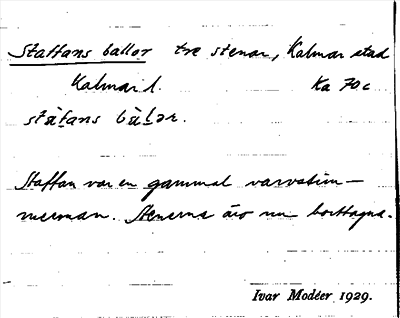 Staffans ballor tre stenar, Kalmar stad
Kalmar l. Ka 70 c
stàfans bàlər.
Staffan var en gammal varvstim-
merman. Stenarna äro nu borttagna.
Ivar Modéer 1929.